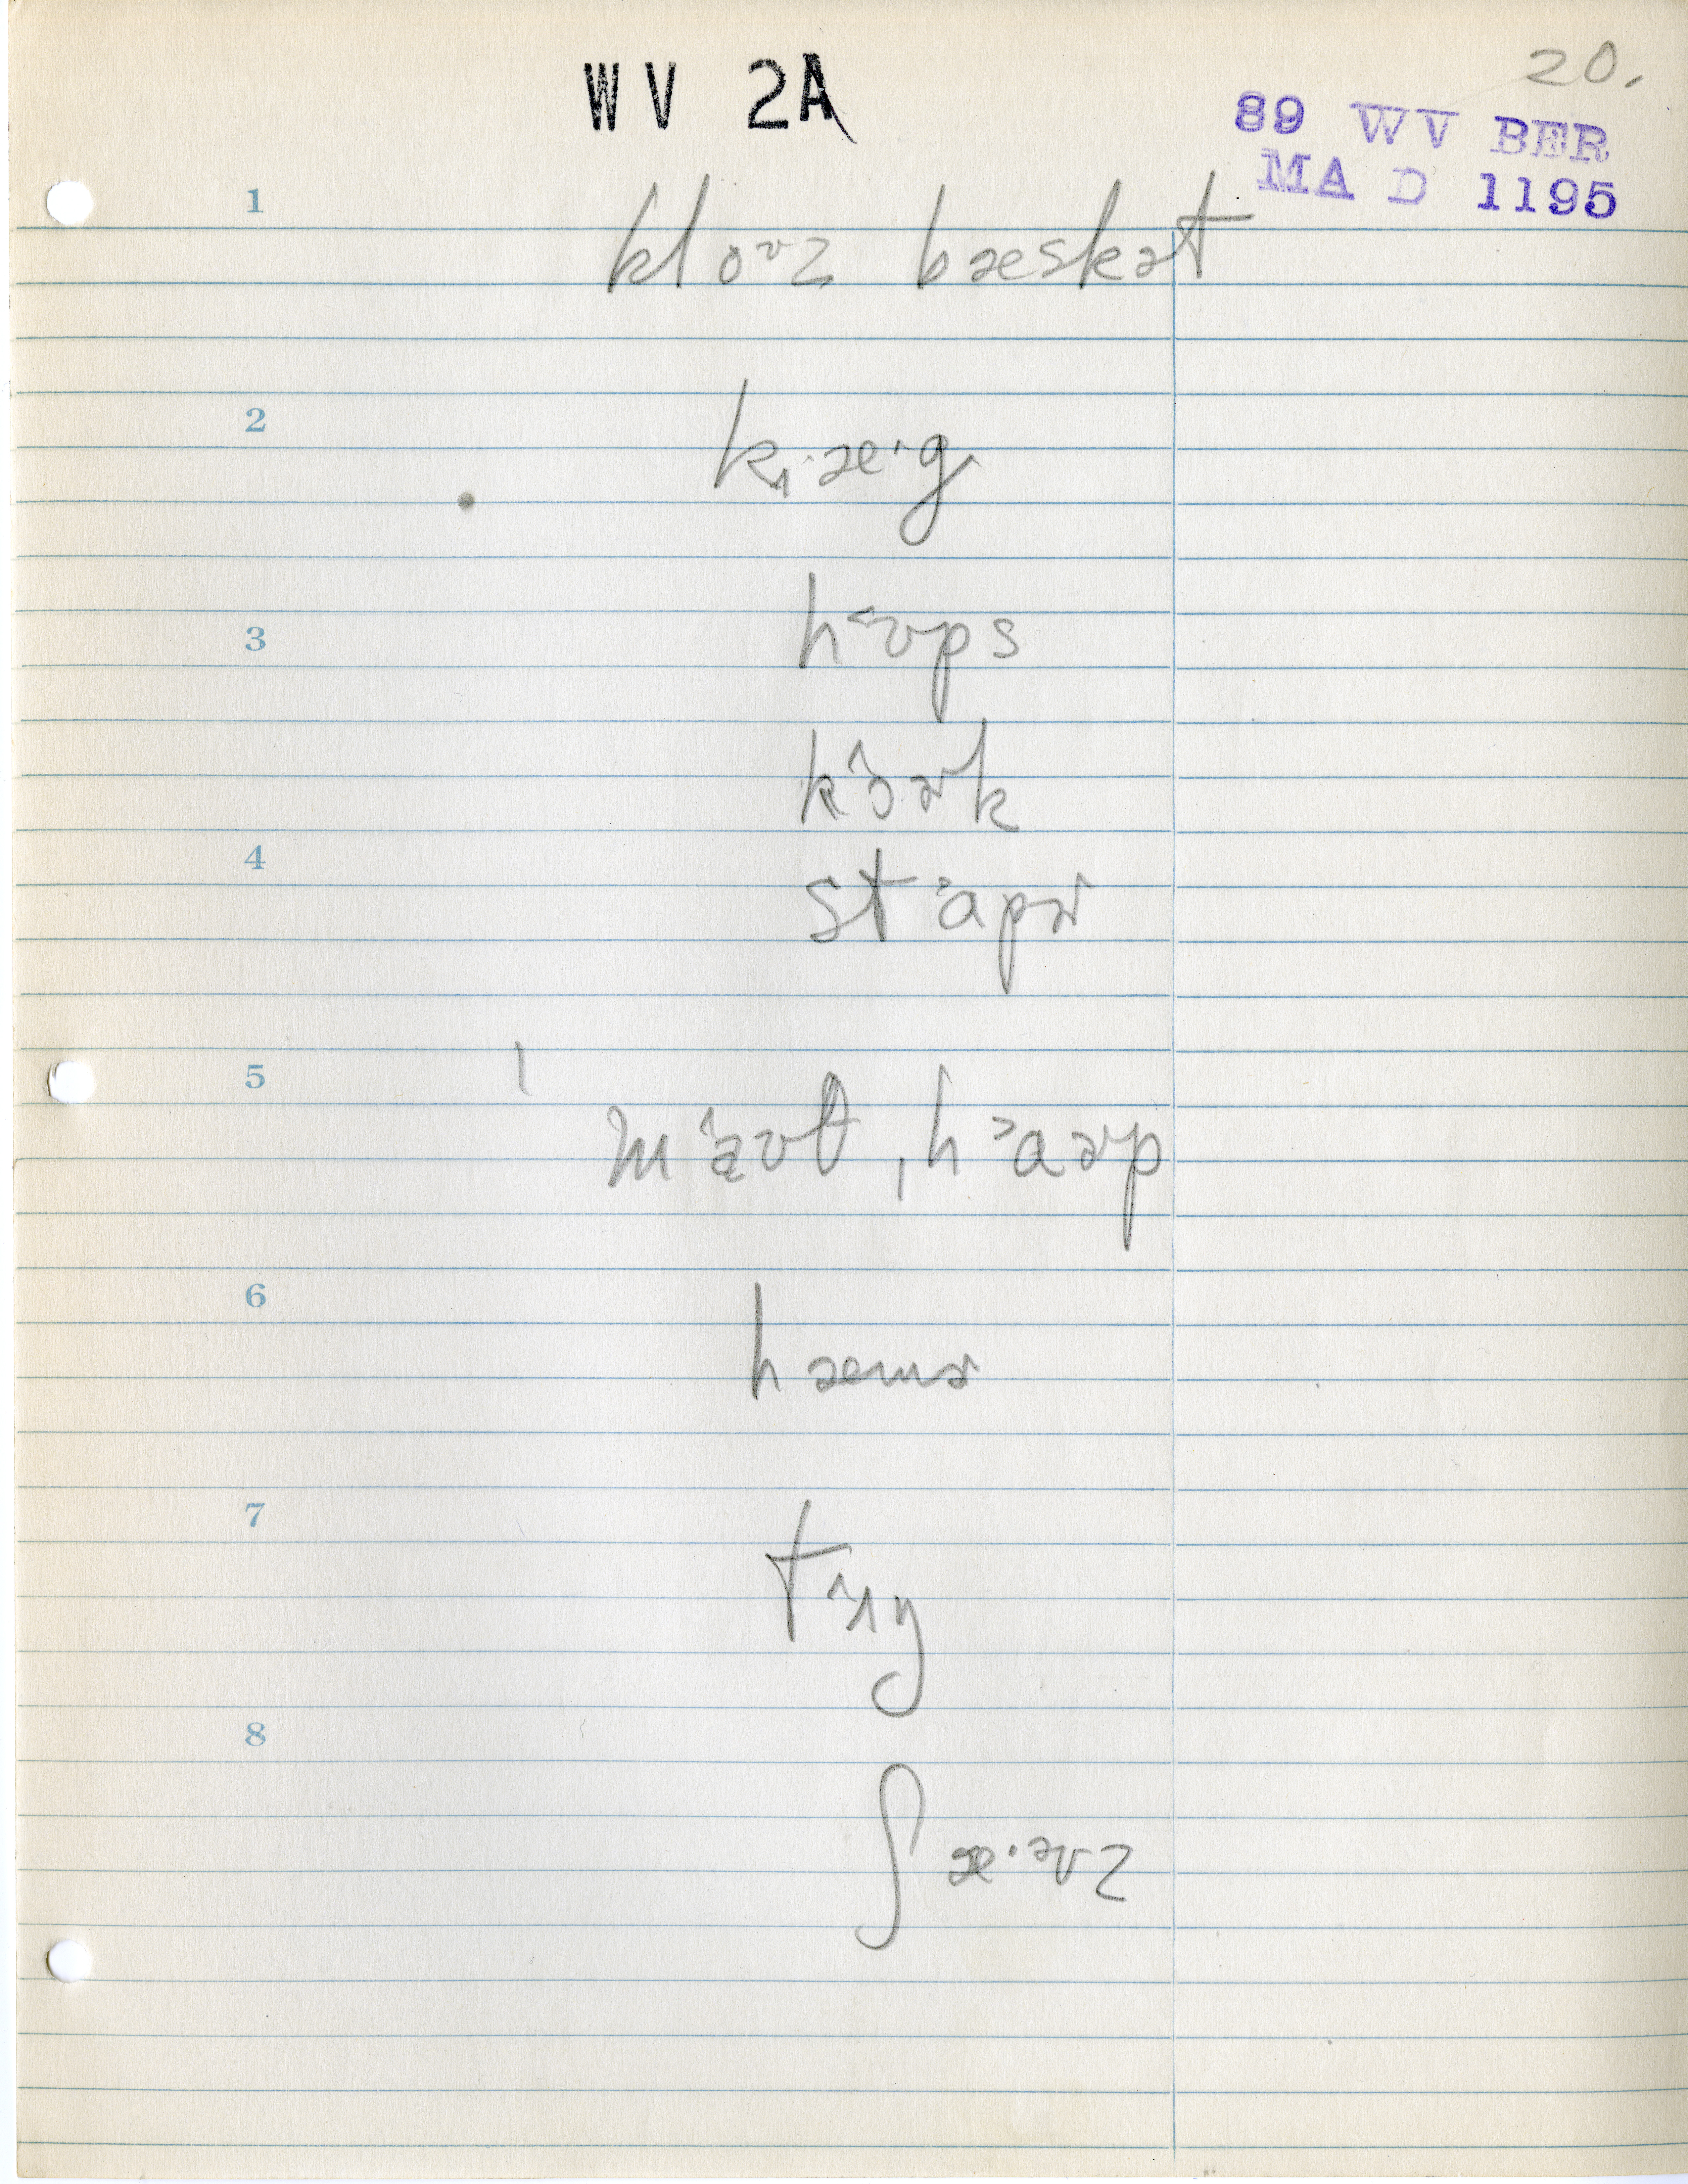 20.
WV 2A
89 WV BER
MA D 1195
1 kloᶷz bæskət
2 k̟æ·g
3 hʊps
kɔɚk
4 stɑpɚ
5 maʊθ, hɑɚp
6 hæmɚ
7 tʌŋ
8 ʃæ·əvz